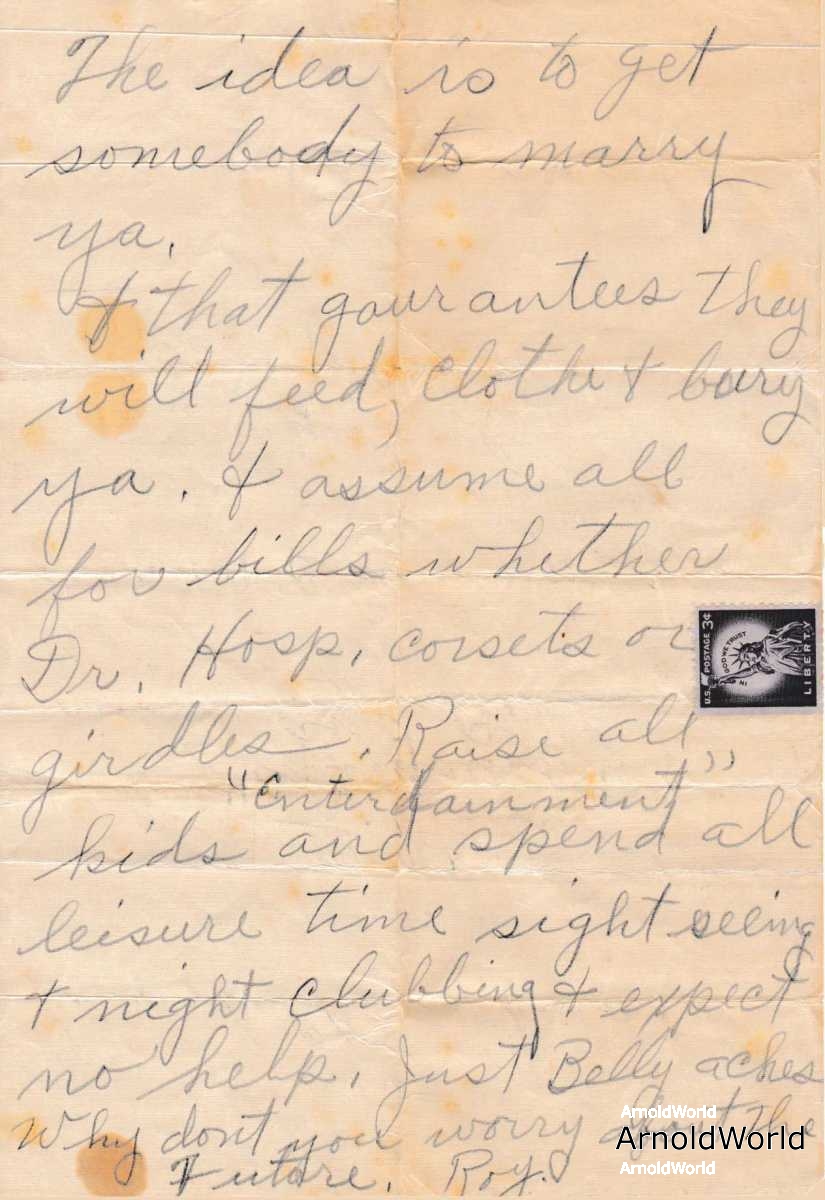 The idea is to get
somebody to marry
ya.
& that gaurantees they
will feed, clothe & bury
ya. & assume all
for bills whether
Dr. Hosp. corsets or
girdles. Raise all
"Enterdainment"
kids and spend all
leisure time sight seeing
& night clubbing & expect
no help. Just Belly aches
Why dont you worry about the
Future. Roy.
U.S. POSTAGE 3¢
IN GOD WE TRUST
LIBERTY
ArnoldWorld
ArnoldWorld
ArnoldWorld